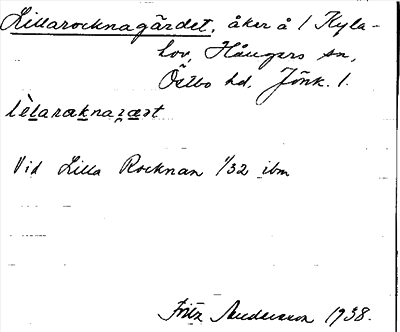 Lillarocknagärdet, åker å 1 Kyla-
hov, Hångers sn,
Östbo hd. Jönk. l.
lèlaraknajæət
Vid Lilla Rocknan 1/32 ibm
Fritz Andersson 1938.